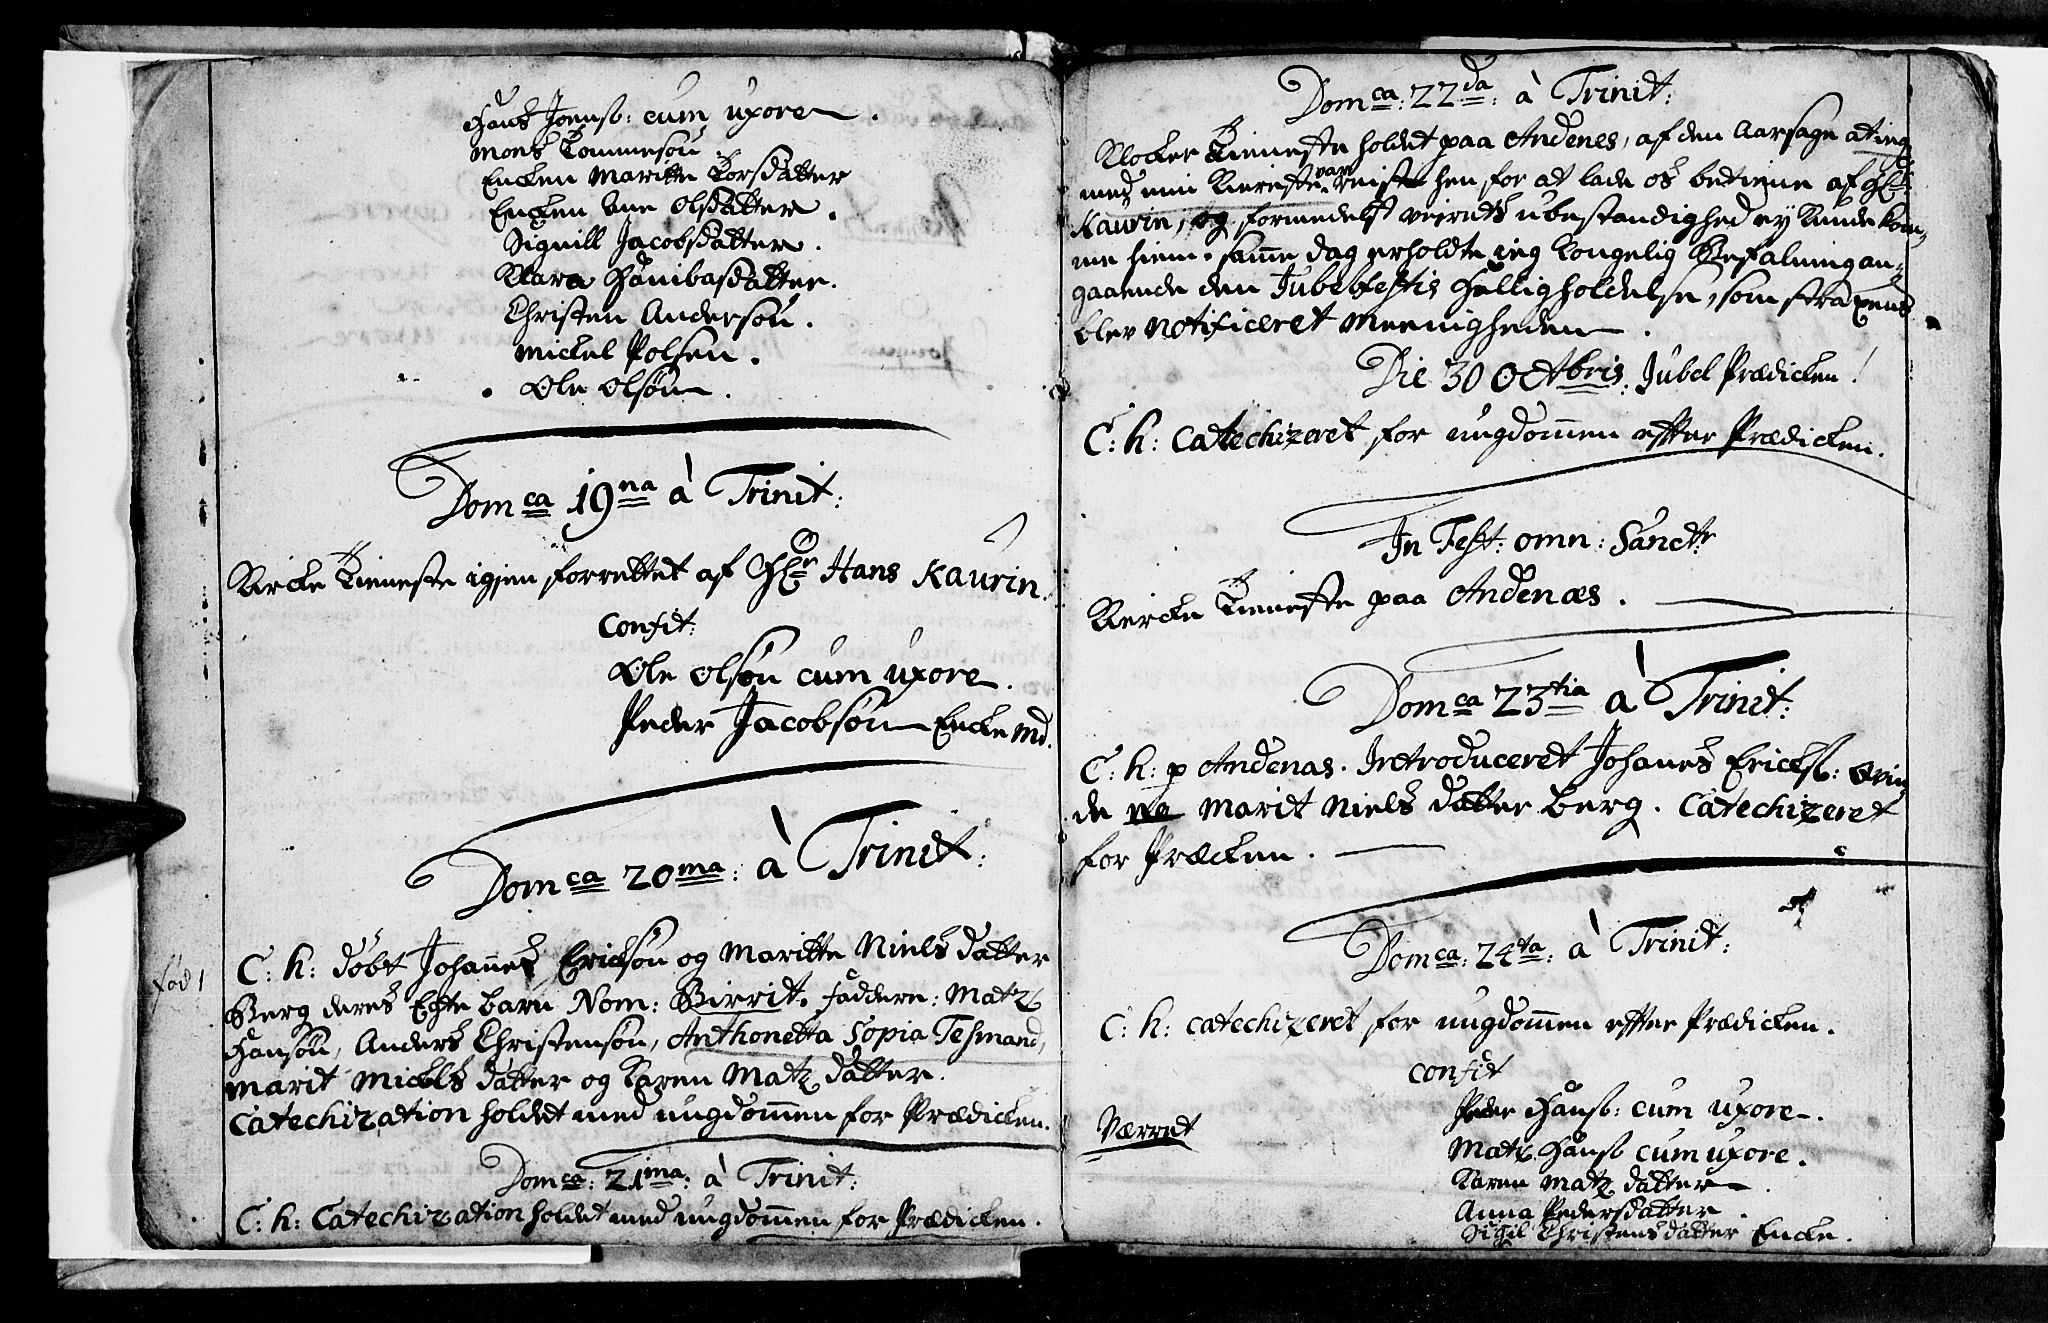 Hans Joensø: cum uxore.
Mons Tommesøn
Encken Maritte Torsdatter
Encken Ane Olsdatter.
Signill Jacobsdatter.
Klara Hanibasdatter.
Christen Andersøn.
Mickel Polsen.
Ole Olsøn.
Domca 19na à Trinit:
Kircke Tieneste igien forrettet af Hr Hans Kaurin.
Confit:
Ole Olsøn cum uxore.
Peder Jacobsøn Encke Md.
Domca 20ma: à Trinit:
fød 1
C: h: døbt Johannes Ericksøn og Maritte Niels datter
Berg deres Egte barn Nom: Birrit. faddere: Matz
Hansøn, Anders Christensøn, Anthonetta Sopia Tesmand,
Marit Mickels datter og Karen Matz datter.
Catechization holdet med ungdommen for Prædicken.
Domca: 21ma: à Trinit:
C: h: Catechization holdet med ungdommen for Prædicken.
Domca: 22da: à Trinit:
Klocker Tieneste holdet paa Andenes, af den Aarsage at ieg
med min Kiereste var reist hen for at lade os betiene af Hr:
Kaurin, og formedelst veirets ubestandighed ey kunde kom,
me hiem. samme dag erholdte ieg Kongelig Befalning an,
gaaende den Jubelfestis Helligholdelse, som straxens
blev notificeret Meenigheden.
Die 30 Octobris. Jubel Prædicken!
C: h: Catechizeret for ungdommen effter Prædicken.
In Fest: omn: Sanctr
Kircke Tieneste paa Andenæs.
Domca 23tia à Trinit:
C: h: p Andenas. Introduceret Johanes Ericks: Qvin,
de Marit Niels datter Berg. Catechizeret
for Præcken.
Domca: 24ta: à Trinit:
C: h: catechizeret for ungdommen effter Prædicken.
Confit
Peder Hansø: cum uxore.
Værret
Matz Hansø cum uxore.
Karen Matz datter.
Anna Pedersdatter.
Sigil Christens datter Encke.